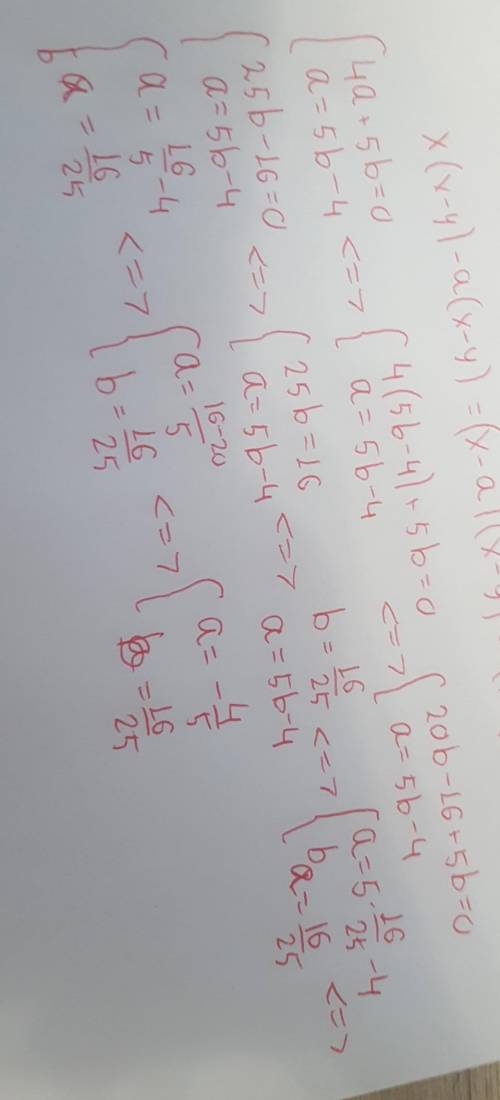 x(x-y)-a(x-y)=(x-a)(x-y)
{ 4a+5b=0 a=5b-4 <=> { 4(5b-4)+5b=0 a=5b-4 <=> { 20b-16+5b=0 a=5b-4
{ 25b-16=0 a=5b-4 <=> { 25b=16 a=5b-4 <=> b=16/25 a=5b-4 <=> { a=5·16/25-4 b=16/25 <=>
{ a=16/5-4 b=16/25 <=> { a=16-20/5 b=16/25 <=> { a=-4/5 b=16/25